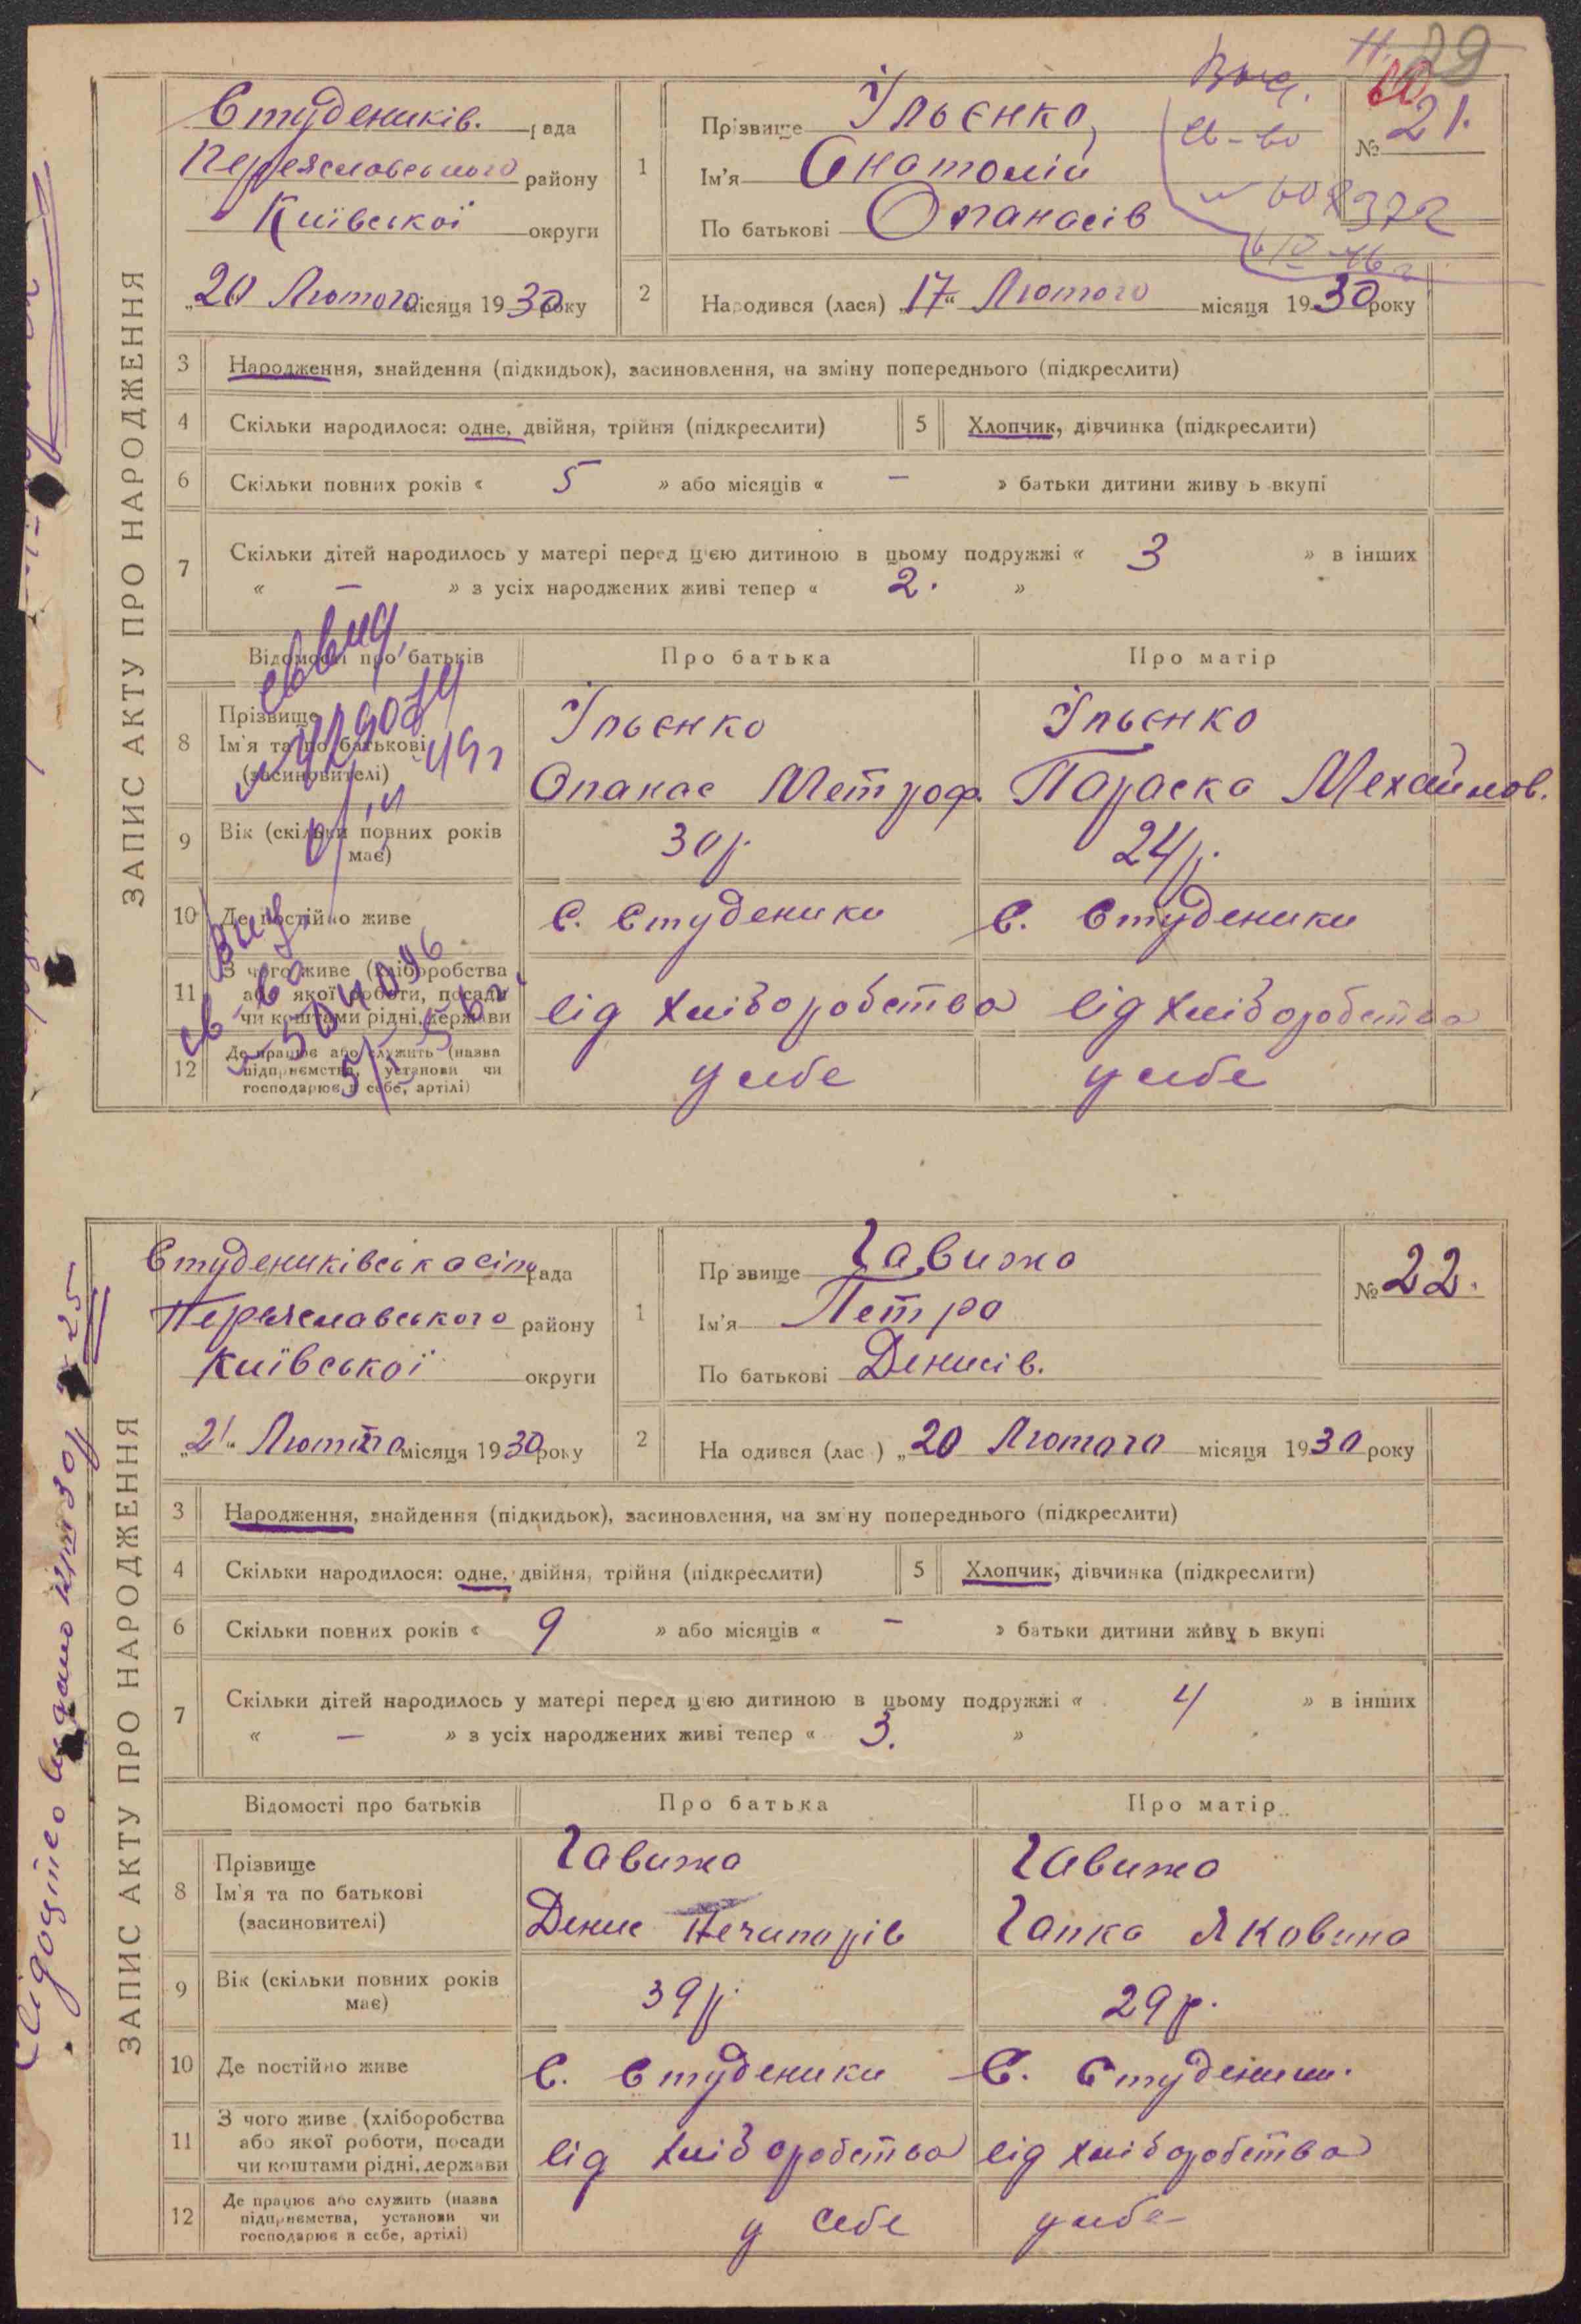 29
60
Студеників. рада
Переяславського району
Київської округи
„20 Лютого місяця 1930 року
1
Прізвище Ільєнко
Ім'я Анатолій
По батькові Опанасів
№ 21.
2
Народився (лася) „17" Лютого місяця 1930 року
ЗАПИС АКТУ ПРО НАРОДЖЕННЯ
3 Народження, знайдення (підкидьок), засиновлення, на зміну попереднього (підкреслити)
4 Скільки народилося: одне, двійня, трійня (підкреслити) 5 Хлопчик, дівчинка (підкреслити)
6 Скільки повних років « 5 » або місяців « — » батьки дитини живуть вкупі
7 Скільки дітей народилось у матері перед цією дитиною в цьому подружжі « 3 » в інших
« — » з усіх народжених живі тепер « 2. »
Відомості про батьків Про батька Про матір
8 Прізвище Ільєнко Ільєнко
Ім'я та по батькові
(засиновителі) Опанас Метроф. Параска Мехайлов.
9 Вік (скільки повних років має) 30 р. 24 р.
10 Де постійно живе С. Студеники С. Студеники
11 З чого живе (хліборобства
або якої роботи, посади
чи коштами рідні, держави від хліборобства від хліборобства
12 Де працює або служить (назва
підприємства, установи чи
господарює в себе, артілі) у себе у себе
Студениківська сіль рада
Переяславського району
Київської округи
„21" Лютого місяця 1930 року
1
Прізвище Гавижа
Ім'я Петро
По батькові Денисів.
№ 22.
2
Народився (лася) „20 Лютого місяця 1930 року
ЗАПИС АКТУ ПРО НАРОДЖЕННЯ
3 Народження, знайдення (підкидьок), засиновлення, на зміну попереднього (підкреслити)
4 Скільки народилося: одне, двійня, трійня (підкреслити) 5 Хлопчик, дівчинка (підкреслити)
6 Скільки повних років « 9 » або місяців « — » батьки дитини живуть вкупі
7 Скільки дітей народилось у матері перед цією дитиною в цьому подружжі « 4 » в інших
« — » з усіх народжених живі тепер « 3. »
Відомості про батьків Про батька Про матір
8 Прізвище Гавижа Гавижа
Ім'я та по батькові
(засиновителі) Денис Нечипорів Гапка Яковина
9 Вік (скільки повних років має) 39 р. 29 р.
10 Де постійно живе С. Студеники С. Студеники.
11 З чого живе (хліборобства
або якої роботи, посади
чи коштами рідні, держави від хліборобства від хліборобства
12 Де працює або служить (назва
підприємства, установи чи
господарює в себе, артілі) у себе у себе